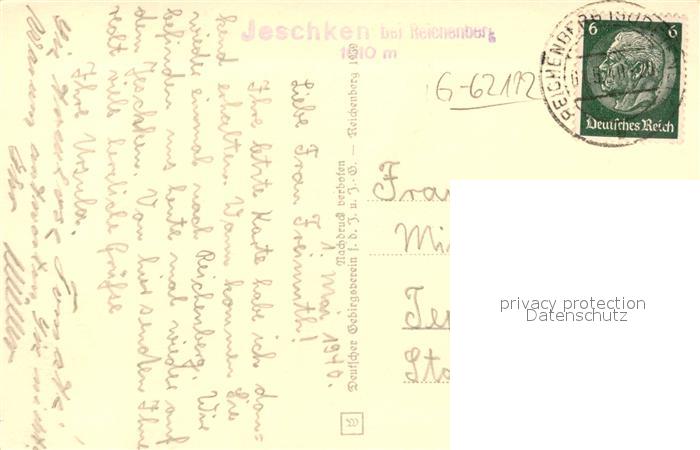 Jeschken bei Reichenberg
1010 m
1. Mai 1940.
Liebe Frau Freimuth!
Ihre letzte Karte habe ich dan-
kend erhalten. Wann kommen Sie
wieder einmal nach Reichenberg. Wir
befinden uns heute mal wieder auf
dem Jeschken. Von hier senden Ihnen
recht viele herzliche Grüße
Ihre Ursula.
Warum antworten Sie nicht.
Nachdruck verboten
Deutscher Gebirgsverein f. d. J. u. J.-G. — Reichenberg 1939
G-62112
REICHENBERG
6 6
Deutsches Reich
Frau
privacy protection
Datenschutz